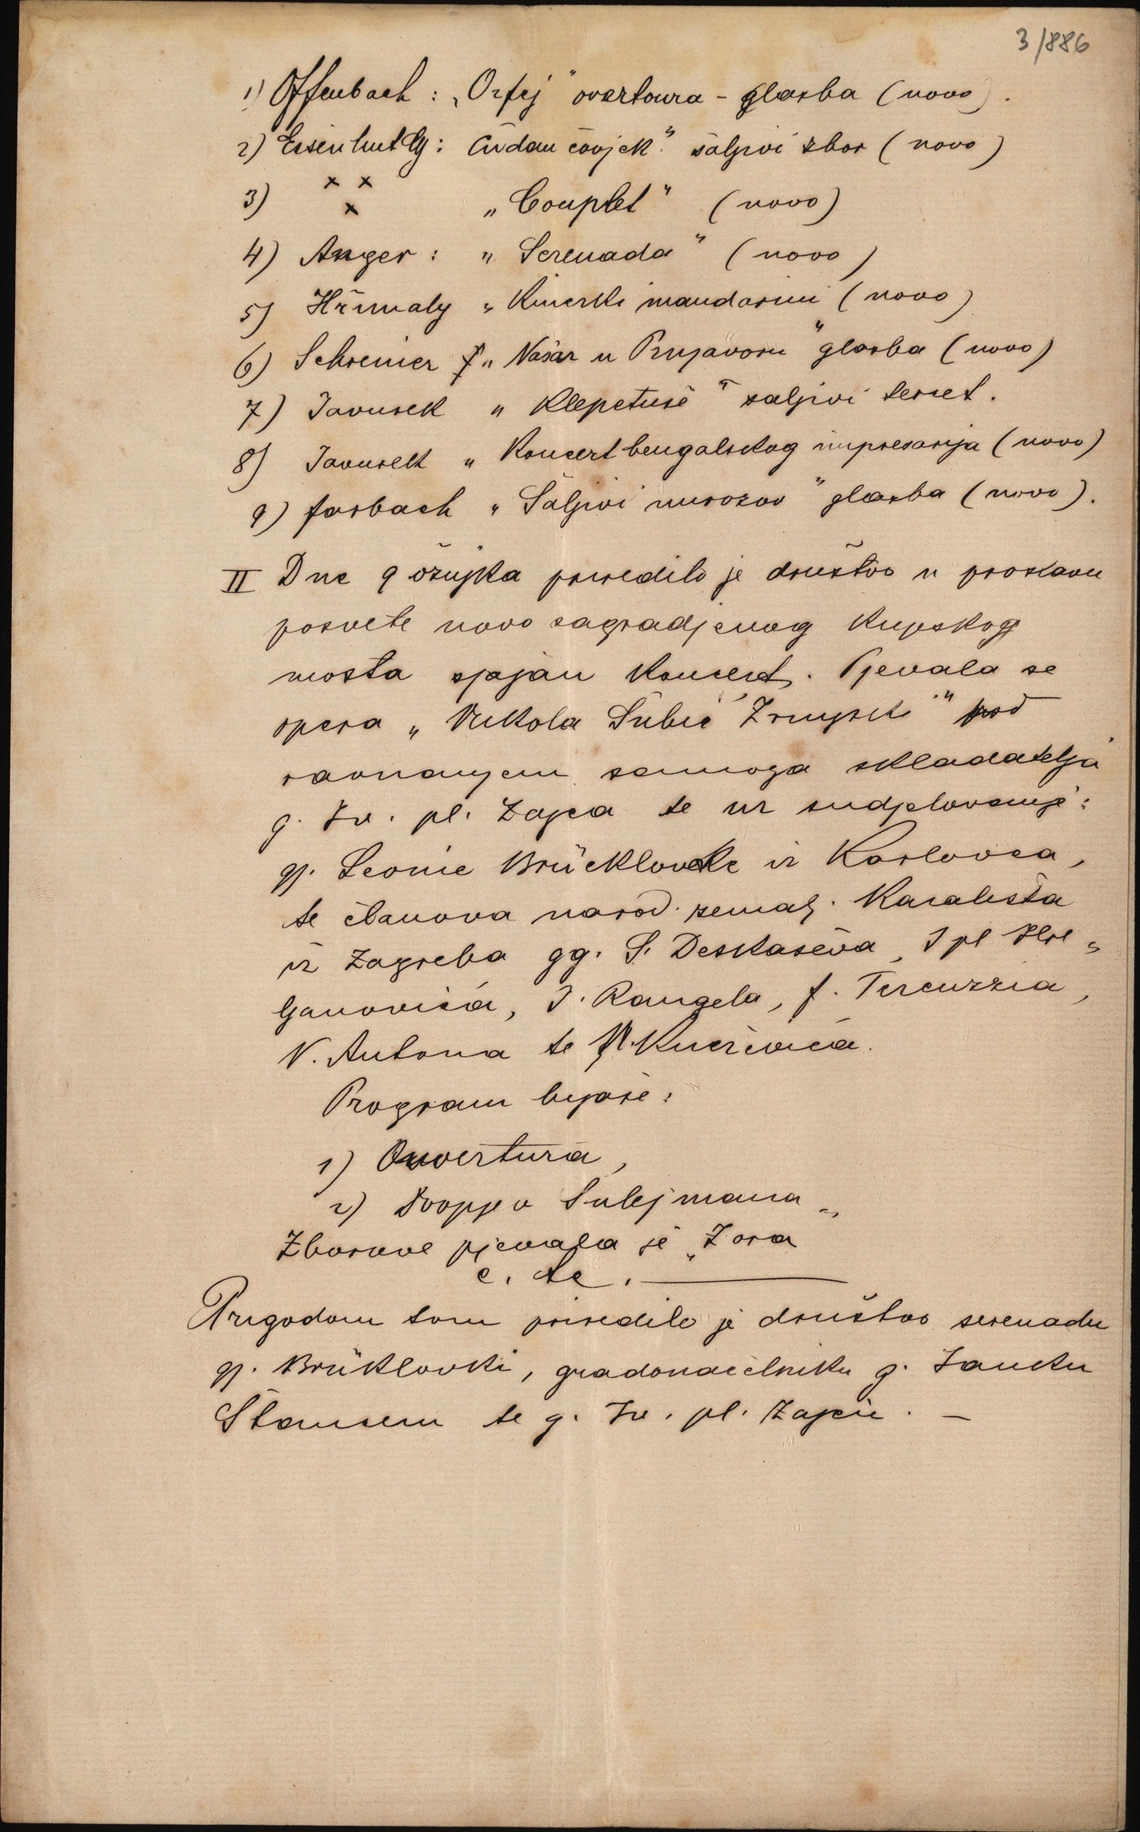 3/886
1) Offenbach : „Orfej" overtoura - glasba (novo).
2) Eisenhuth Gj: Čudan čovjek." šaljivi zbor (novo)
3) x x x „Couplet" (novo)
4) Anger : „Serenada" (novo)
5) Hřimaly „Kineski mandarini (novo)
6) Schreiner „Vašar u Prnjavoru" glasba (novo)
7) Javurek „Klepetuše" šaljivi terset.
8) Javurek „Koncert bengalskog impresarija (novo)
9) Farbach „Šaljivi" glasba (novo).
II Dne 9 ožujka priredilo je društvo u proslavu
posvete novo sagradjenog Kupskog
mosta sjajan Koncert. Pjevala se
opera „Nikola Šubić Zrinjski" pod
ravnanjem samoga skladatelja
g. Iv. pl. Zajca te uz sudjelovanje:
gj. Leonie Brücklovke iz Karlovca,
te članova narod. zemalj. Kazališta
iz Zagreba gg. S. Deskaševa, I pl Hre„
ljanovića, I. Rangela, F. Tercuzzia,
V. Antona te M. Kneževića.
Program bijaše:
1) Ouvertura,
2) Dvopjev Sulejmana„
Zborove pjevala je „Zora
e. tc.
Prigodom tom priredilo je društvo serenadu
gj. Brüklovki, gradonačelniku g. Janku
Štanseru te g. Iv. pl. Zajcu. —